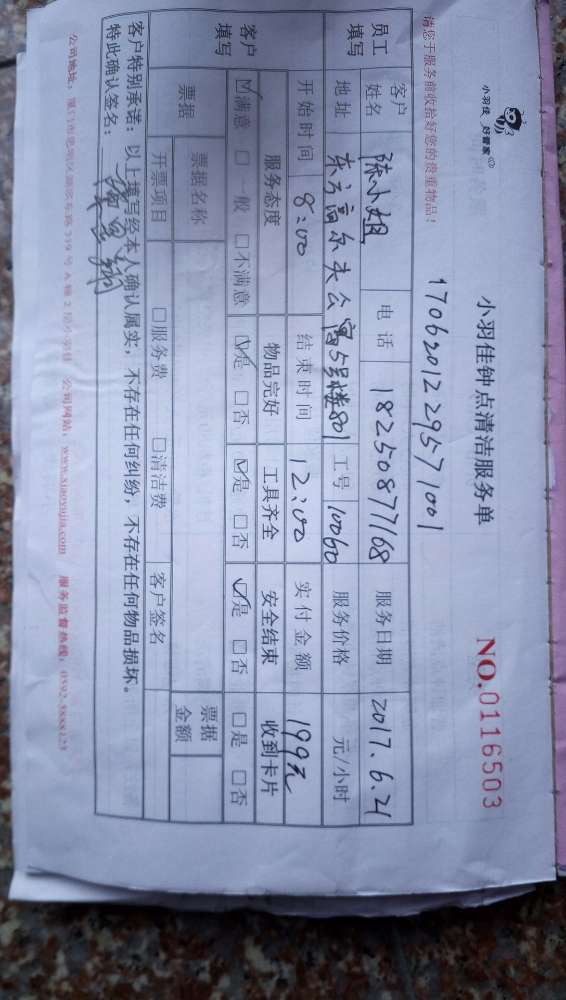 小羽佳 好管家
小羽佳钟点清洁服务单
NO.0116503
1706201229571001
请您于服务前收拾好您的贵重物品!
员工填写 客户姓名 陈小姐 电话 18250877168 服务日期 2017.6.21
地址 东方高尔夫公寓5号楼801 工号 10060 服务价格 元/小时
开始时间 8:00 结束时间 12:00 实付金额 199元
客户填写 服务态度 物品完好 工具齐全 安全结束 收到卡片
☑满意 □一般 □不满意 ☑是 □否 ☑是 □否 ☑是 □否 □是 □否
票据 票据名称 票据金额
开票项目 □服务费 □清洁费 客户签名
客户特别承诺:以上填写经本人确认属实,不存在任何纠纷,不存在任何物品损坏。
特此确认签名:
公司地址:厦门市思明区 219号A幢2层小羽佳 公司网站:www.xiaoyujia.com 服务监督热线:0592-5888123